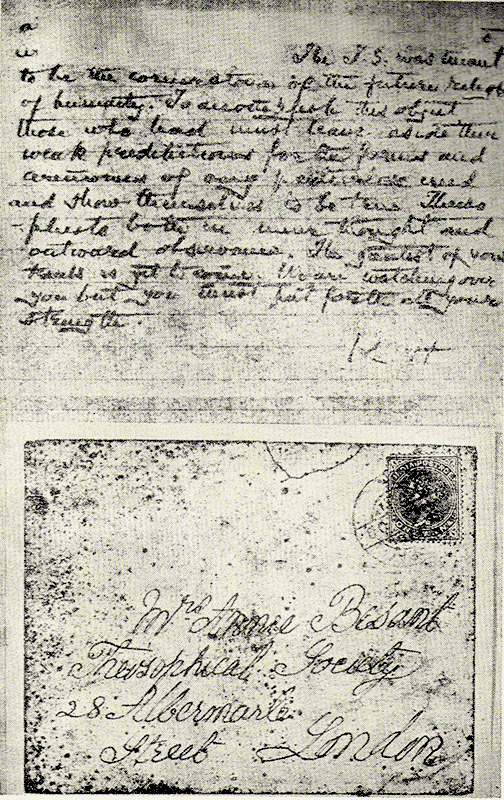 The T.S. was meant
to be the cornerstone of the future religions
of humanity. To accomplish this object
those who lead must leave aside their
weak predilections for the forms and
ceremonies of any particular creed
and show themselves to be true Theoso
-phists both in inner thought and
outward observance. The greatest of your
trials is yet to come. We are watching over
you but you must put forth all your
strength.
K.H
Mrs Annie Besant
Theosophical Society
28 Albermarle
Street London